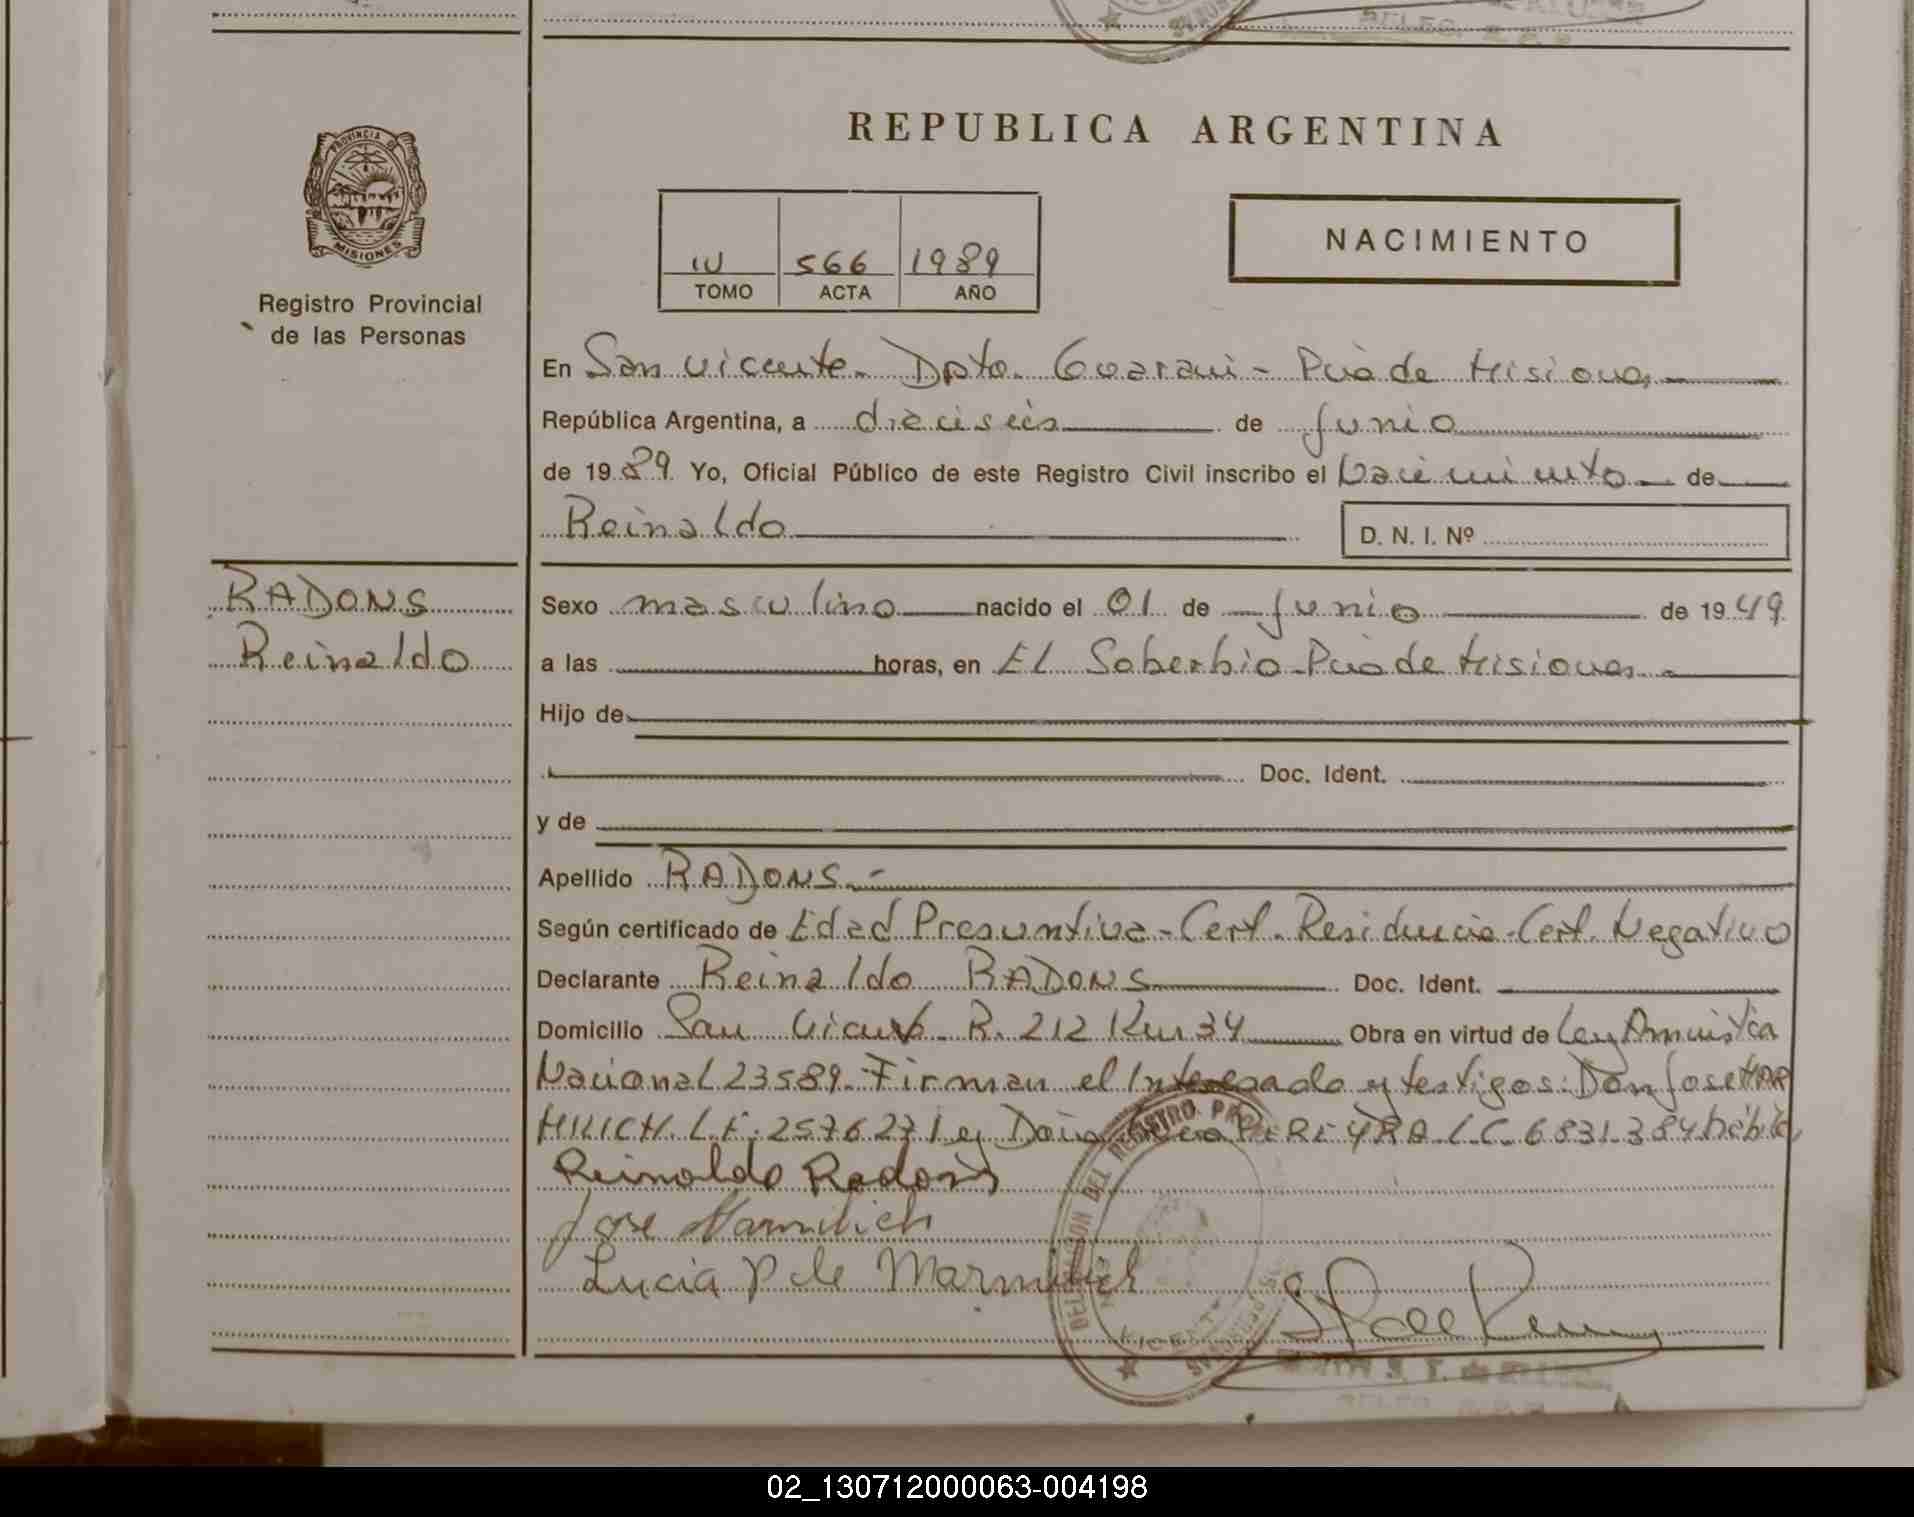 REPUBLICA ARGENTINA
PROVINCIA DE
MISIONES
Registro Provincial
de las Personas
IV 566 1989
TOMO ACTA AÑO
NACIMIENTO
En San Vicente. Dpto. Guarani - Pcia de Misiones
República Argentina, a dieciseis de junio
de 1989 Yo, Oficial Público de este Registro Civil inscribo el Nacimiento de
Reinaldo
D. N. I. Nº
RADONS
Reinaldo
Sexo masculino nacido el 01 de junio de 1949
a las horas, en El Soberbio - Pcia de Misiones.-
Hijo de
Doc. Ident.
y de
Apellido RADONS.-
Según certificado de Edad Presuntiva - Cert. Residencia - Cert. Negativo
Declarante Reinaldo RADONS Doc. Ident.
Domicilio San Vicente R. 212 Km 34 Obra en virtud de Ley Amnistia
Nacional 23589. Firman el Interesado y testigos: Don Jose MAR
MILICH. L.E. 2576271 y Doña PEREYRA L.C. 6831.384 hábiles
Reinaldo Radons
Jose Marmilich
Lucia P de Marmilich
DELEGACION DEL REGISTRO
02_130712000063-004198